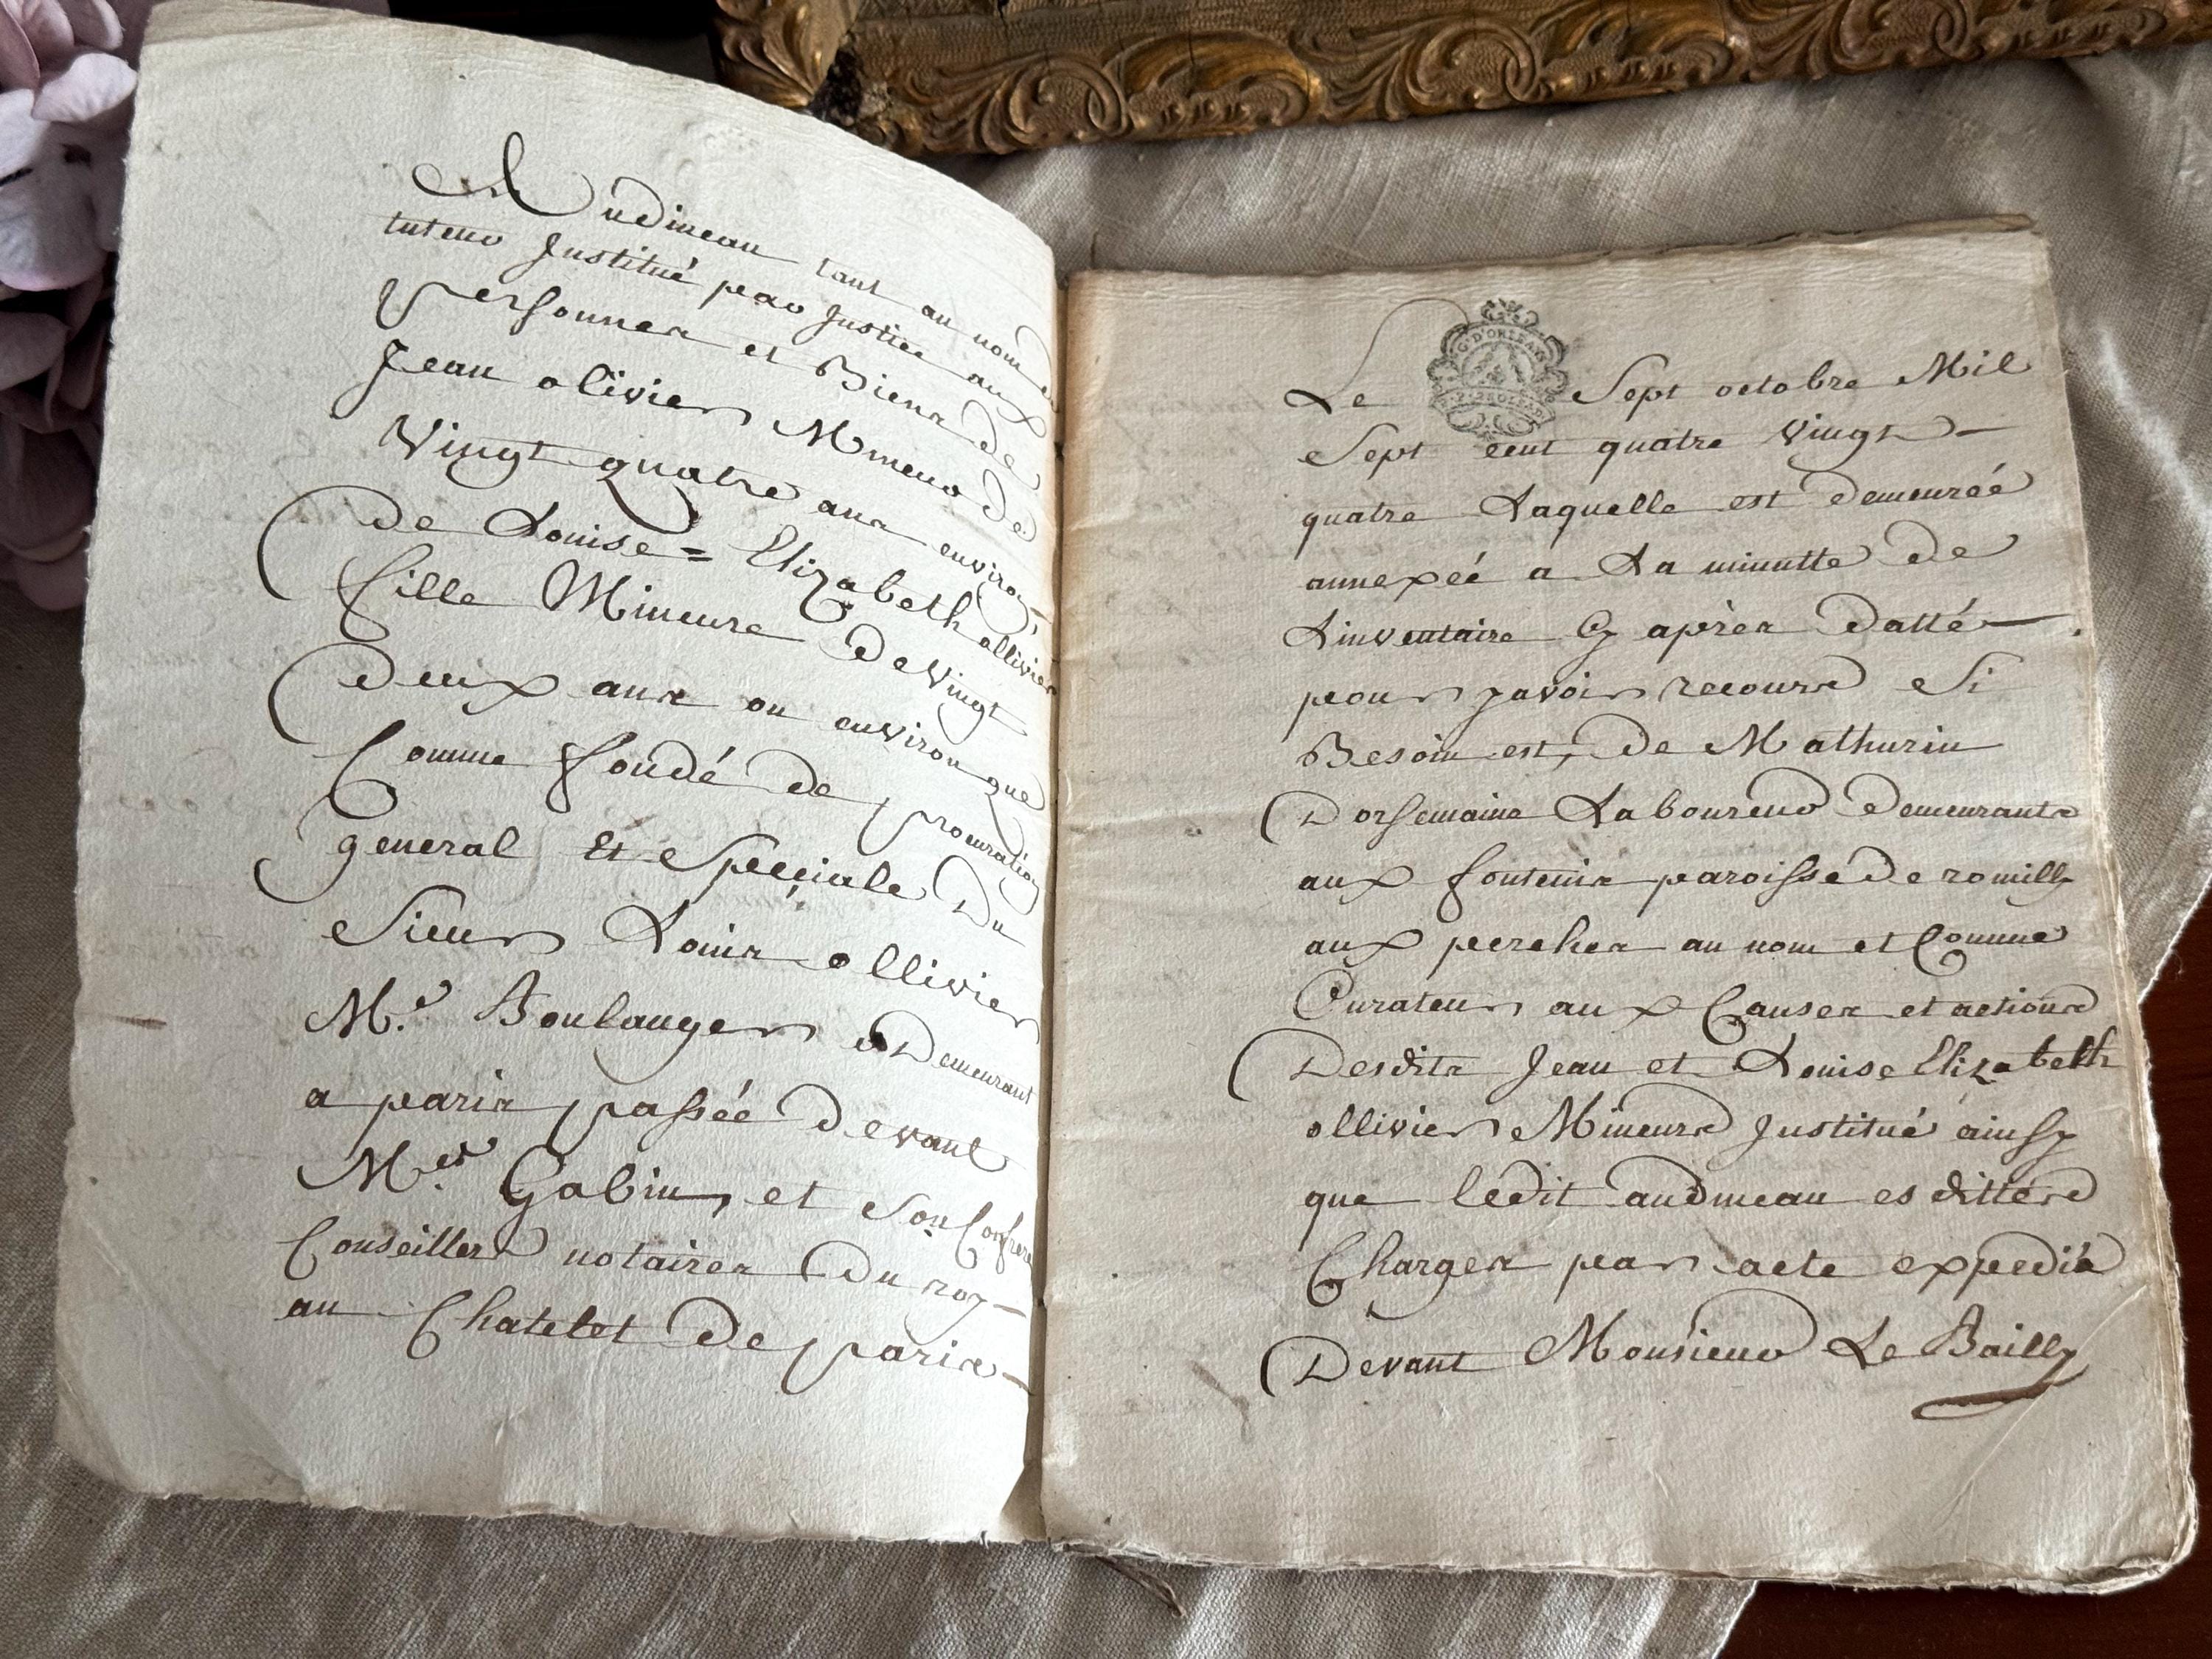 Audineau tant au nom et
tuteur Justitué par Justice aux
personnes et Biens de
Jean olivier Mineur de
Vingt quatre ans environ
de Louise = Elizabeth ollivier
fille Mineure de Vingt
deux ans ou environ que
Comme fondé de procuration
general Et Speciale Du
Sieur Louis ollivier
M.e Boulanger Demeurant
a paris passée devant
M.es Gabin et Son Confrere
Conseillers notaires Du roy
au Chatelet de paris
Le Sept octobre Mil
Sept cent quatre Vingt
quatre Laquelle est demeuréé
annexéé a La minutte de
Linventaire Cy après datté
pour y avoir recours Si
Besoin est, de Mathurin
Dorsemaine Laboureur Demeurants
aux fontenis paroisse De romilly
aux perches au nom et Comme
Curateur aux Causes et actions
Desdits Jean et Louise Elizabeth
ollivier Mineurs Justitué ainsy
que ledit audineau es dittes
Charges par acte expedié
Devant Monsieur Le Bailly
G. D'ORLEANS